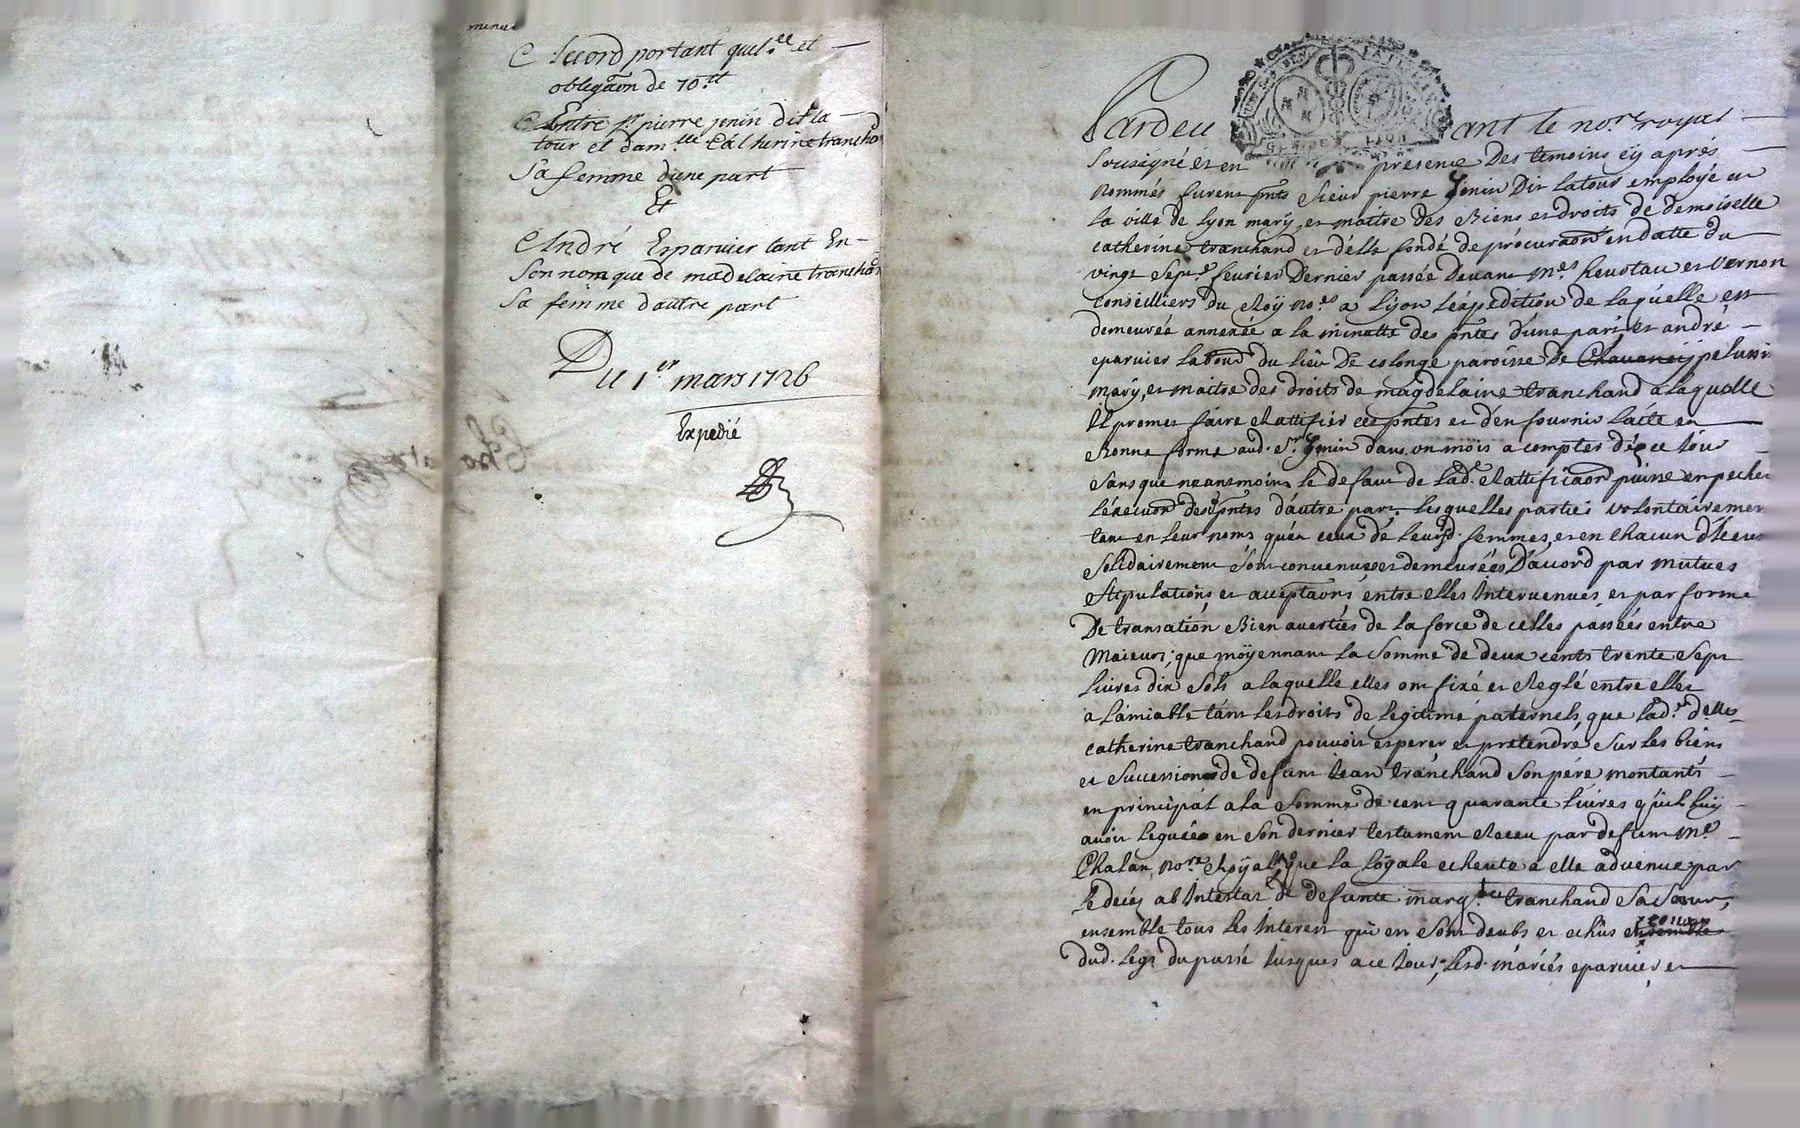 minut
Accord portant quit.ce et
obligaon de 70.tt
Entre Sr pierre jenin dit la
tour et dam.lle Catherine tranchd
Sa femme d'une part
Et
André Eparvier tant En
Son nom que de madelaine tranchd
Sa femme d'autre part
Du 1.er mars 1726
Expedié
Pardevant le no.re royal
Sousigné et en presence Des temoins cÿ aprés
Nommés furent pnts Sieur pierre Jenin Dit latour employé en
la ville de Lyon marÿ, et maitre Des Biens et droits de demoiselle
catherine tranchand et d'elle fondé de procuraon en datte du
vingt Sept.e fevrier Dernier passée Devant m.es et Vernon
Conseilliers du Roÿ no.es a Lÿon l'expedition de laquelle est
demeurée annexée a la minutte des pntes d'une part et andré
eparvier lab du lieu De colonge paroisse de Chavaneÿ pelussin
marÿ, et maitre des droits de magdelaine tranchand a laquelle
Il promet faire Rattifier ces pntes et d'en fournir l'acte en
Bonne forme aud. S.r Jenin dans un mois a compter de ce Jour
Sans que neansmoins le defaut de lad. Rattificaon puisse empecher
l'execuon des pntes d'autre part lesquelles parties volontairement
tant en leur noms qu'en ceux de leursd. femmes, et en chacun d'Iceux
Solidairement Sont convenues et demeurées D'accord par mutues
Stipulations et acceptaons entre elles Intervenues, et par forme
De transation Bien averties de la force de celles passées entre
Majeurs, que moÿennant la Somme de deux cents trente Sept
livres dix Sols a laquelle elles ont fixé et Reglé entre elles
a l'amiable tant les droits de legitime paternels, que lad. d.elle
catherine tranchand pouvoit esperer et pretendre Sur les biens
et Successions de defunt Jean tranchand Son pére montants
en principal a la Somme de cent quarante livres qu'il luÿ
avoit leguée en Son dernier testament Receu par defunt m.e
Chalan, no.re Roÿal, que la loÿale echeute a elle advenue par
le decés ab Intestat de defunte marg.te tranchand Sa Sœur,
ensemble tous les Interest qui en Sont deubs et echûs
dud. legs du passé Jusques a ce Jour, lesd. mariés eparvier et